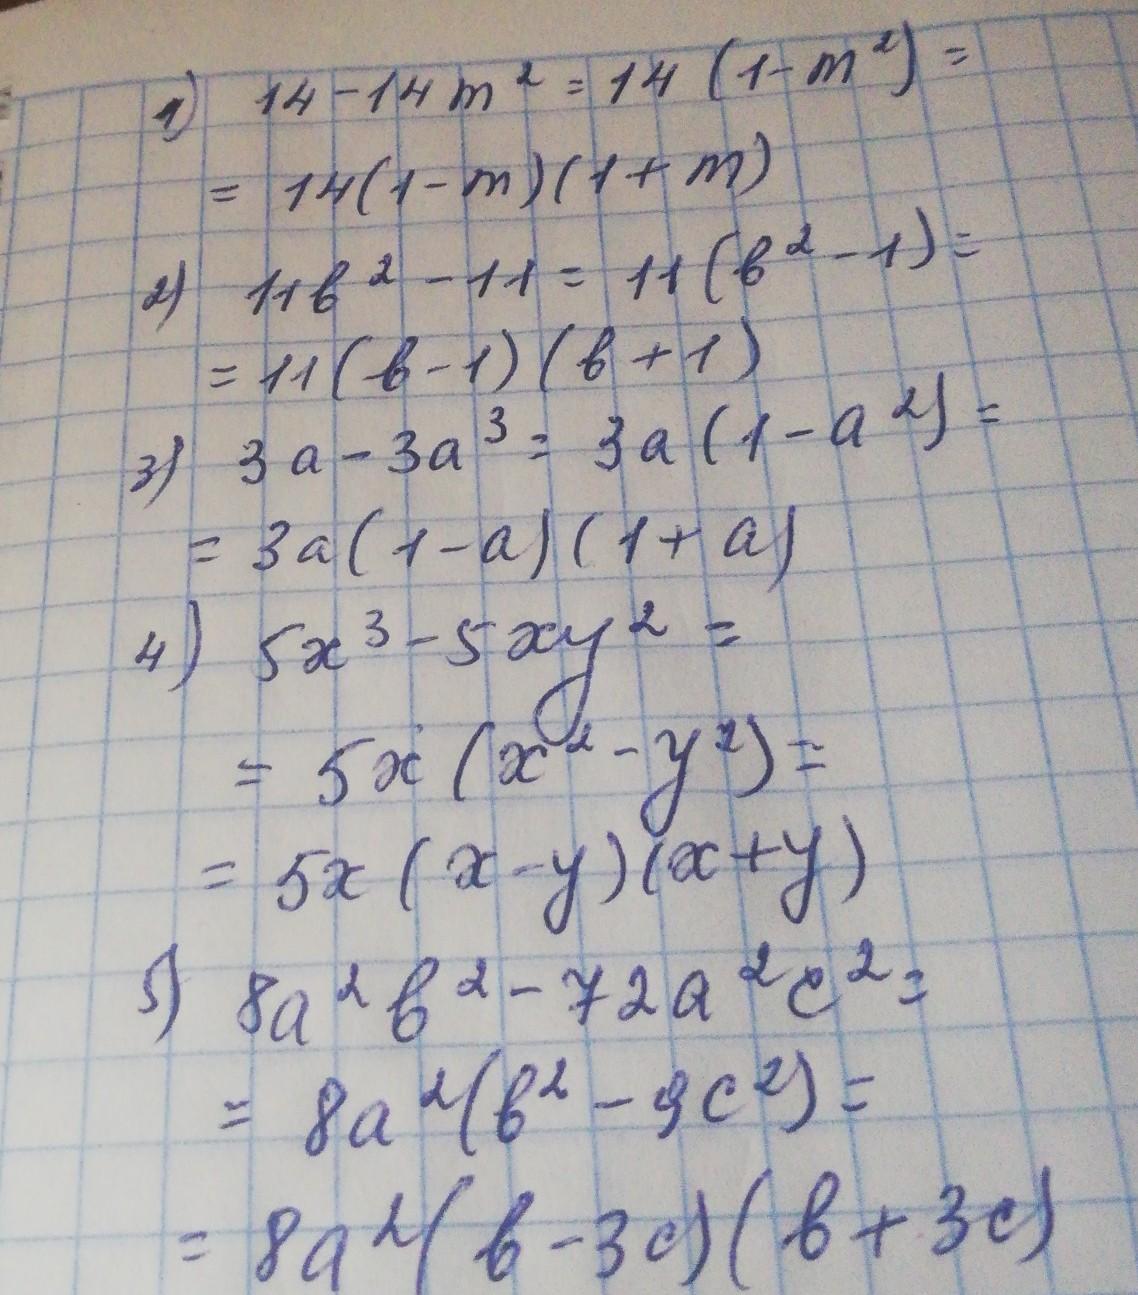 1) 14 - 14m² = 14 (1 - m²) =
= 14(1 - m)(1 + m)
2) 11в² - 11 = 11(в² - 1) =
= 11(в - 1)(в + 1)
3) 3a - 3a³ = 3a(1 - a²) =
= 3a(1 - a)(1 + a)
4) 5x³ - 5xy² =
= 5x(x² - y²) =
= 5x(x - y)(x + y)
5) 8a²в² - 72a²c² =
= 8a²(в² - 9c²) =
= 8a²(в - 3c)(в + 3c)